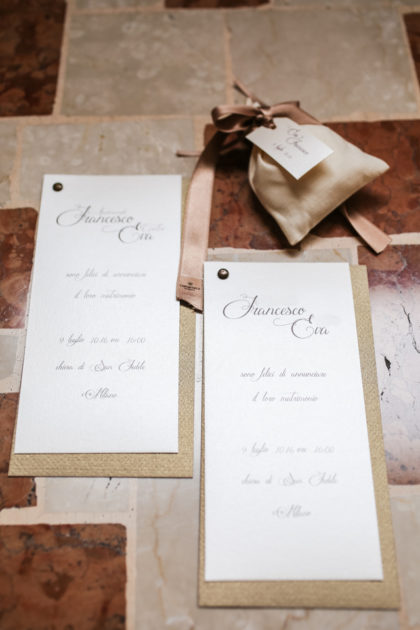 Francesco
Eva
sono felici di annunciare
il loro matrimonio
9 luglio 2016 ore 16:00
chiesa di San Fedele
Albino
Francesco
Eva
sono felici di annunciare
il loro matrimonio
9 luglio 2016 ore 16:00
chiesa di San Fedele